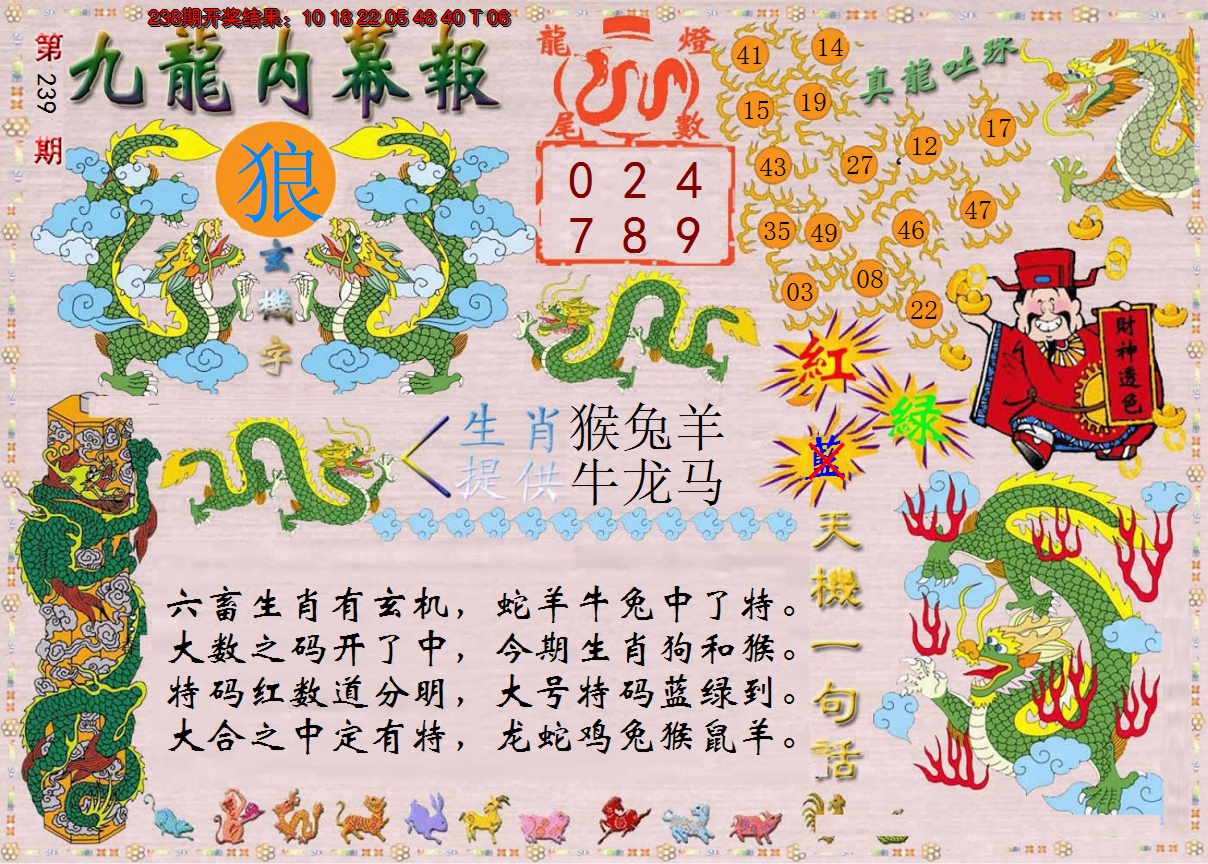 238期开奖结果：10 18 22 05 48 40 T 06
第239期
九龍内幕報
狼
玄機字
龍燈尾數
0 2 4
7 8 9
真龍吐珠
41 14
15 19
43 27 12 17
35 49 46 47
03 08 22
財神透色
紅
綠
藍
生肖提供
猴兔羊
牛龙马
六畜生肖有玄机，蛇羊牛兔中了特。
大数之码开了中，今期生肖狗和猴。
特码红数道分明，大号特码蓝绿到。
大合之中定有特，龙蛇鸡兔猴鼠羊。
天機一句話